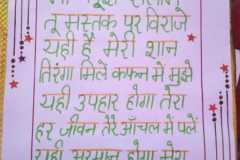 तू मस्तक पर विराजे
यही है मेरी शान
तिरंगा मिले कफन में मुझे
यही उपहार होगा तेरा
हर जीवन तेरे आँचल में पलें
यही अरमान होगा मेरा